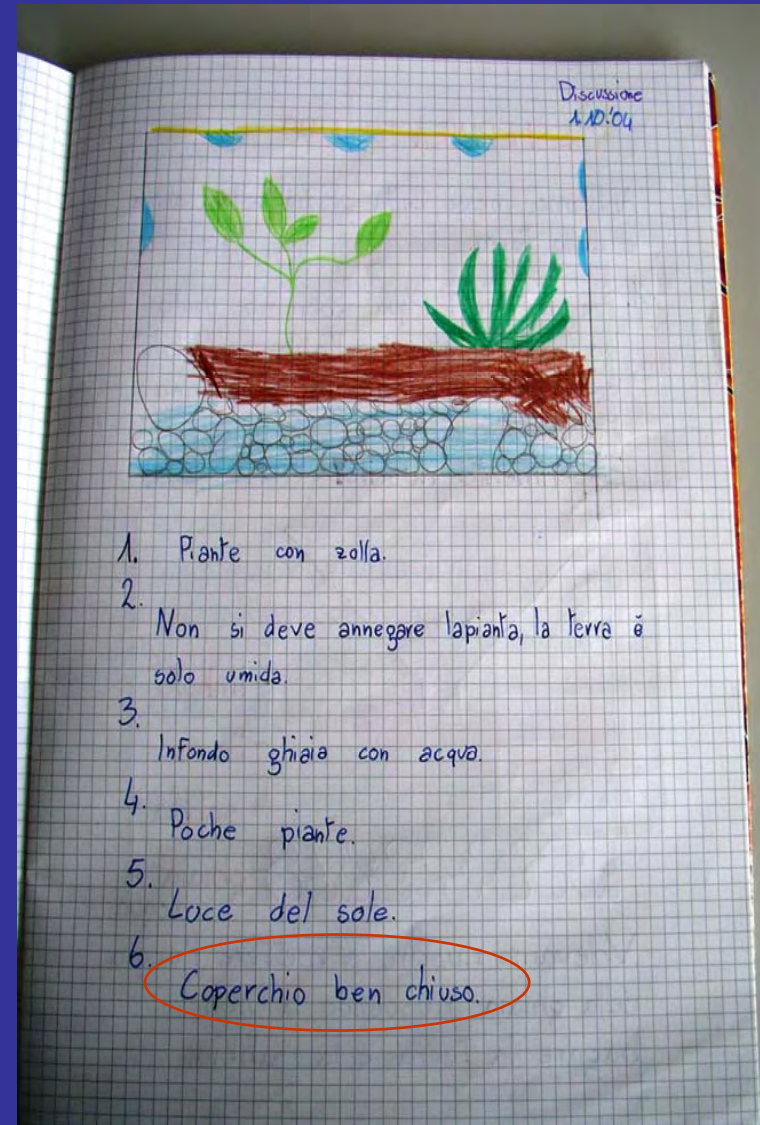 Discussione
1.10.'04
1. Piante con zolla.
2.
Non si deve annegare lapianta, la terra è
solo umida.
3.
Infondo ghiaia con acqua.
4.
Poche piante.
5.
Luce del sole.
6.
Coperchio ben chiuso.